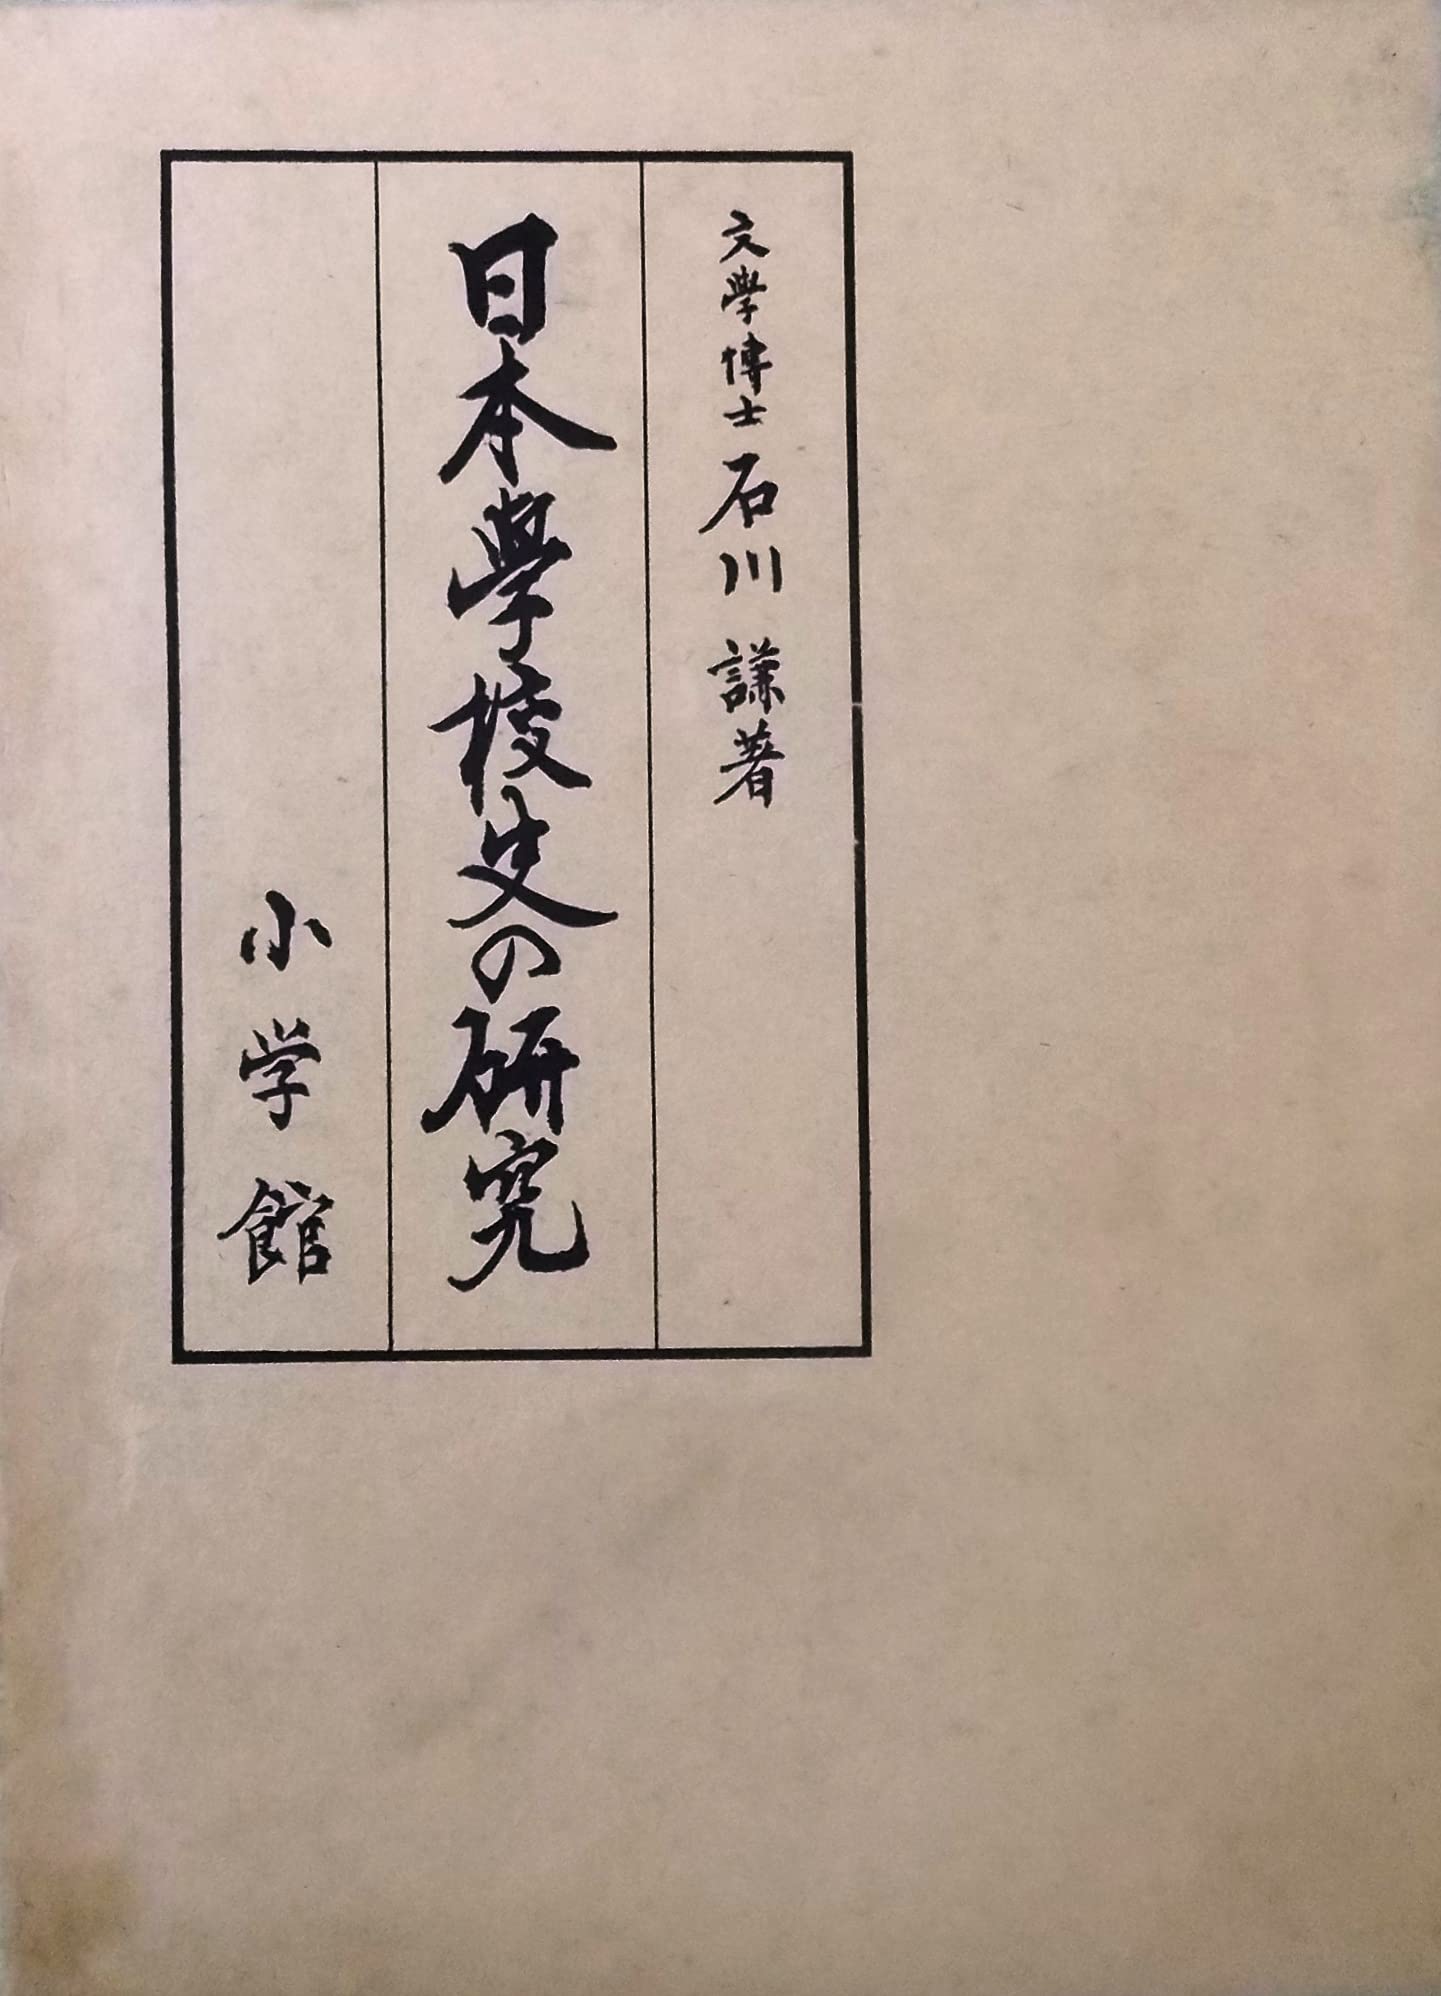 文學博士 石川 謙著
日本學校史の研究
小学館